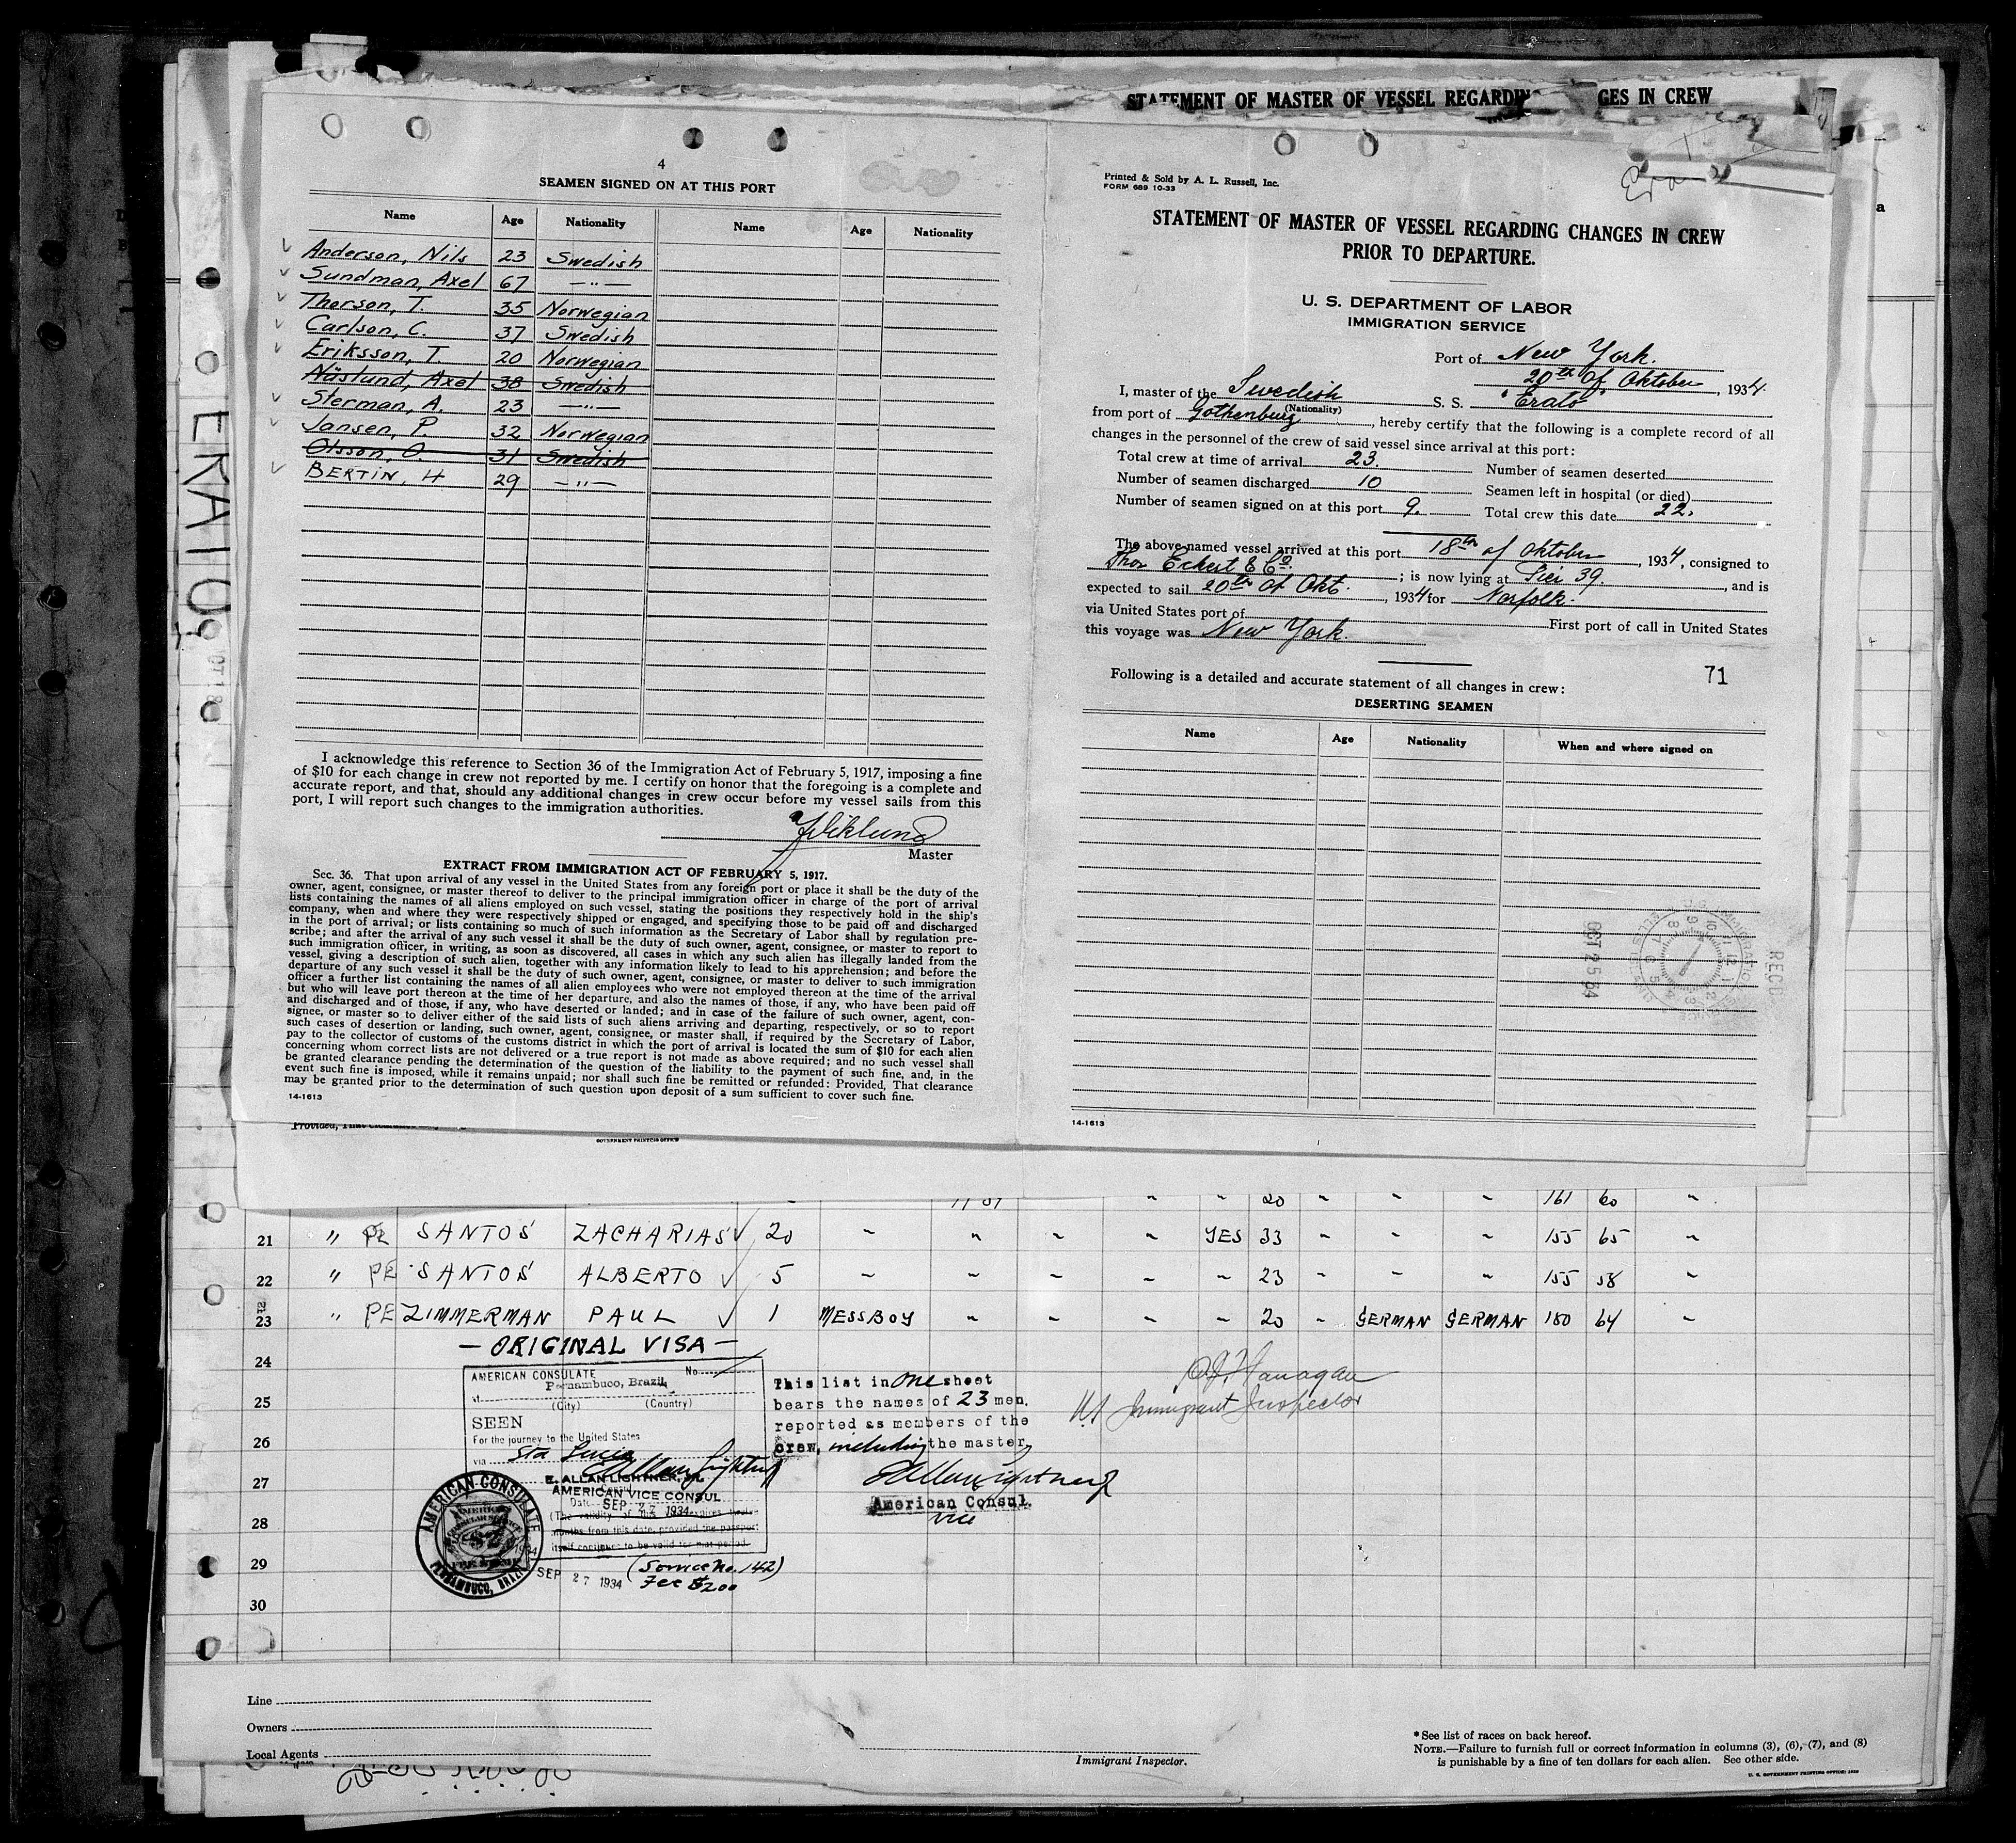 STATEMENT OF MASTER OF VESSEL REGARDIN GES IN CREW
4
SEAMEN SIGNED ON AT THIS PORT
Name Age Nationality Name Age Nationality
Anderson, Nils 23 Swedish
Sundman, Axel 67 —"—
Thorson, T. 35 Norwegian
Carlson, C. 37 Swedish
Eriksson, T. 20 Norwegian
Näslund, Axel 38 Swedish
Sterman, A. 23 —"—
Jansen, P. 32 Norwegian
Olsson, O. 31 Swedish
BERTIN, H 29 —"—
I acknowledge this reference to Section 36 of the Immigration Act of February 5, 1917, imposing a fine
of $10 for each change in crew not reported by me. I certify on honor that the foregoing is a complete and
accurate report, and that, should any additional changes in crew occur before my vessel sails from this
port, I will report such changes to the immigration authorities.
Wiklund
Master
EXTRACT FROM IMMIGRATION ACT OF FEBRUARY 5, 1917.
Sec. 36. That upon arrival of any vessel in the United States from any foreign port or place it shall be the duty of the
owner, agent, consignee, or master thereof to deliver to the principal immigration officer in charge of the port of arrival
lists containing the names of all aliens employed on such vessel, stating the positions they respectively hold in the ship's
company, when and where they were respectively shipped or engaged, and specifying those to be paid off and discharged
in the port of arrival; or lists containing so much of such information as the Secretary of Labor shall by regulation pre-
scribe; and after the arrival of any such vessel it shall be the duty of such owner, agent, consignee, or master to report to
such immigration officer, in writing, as soon as discovered, all cases in which any such alien has illegally landed from the
vessel, giving a description of such alien, together with any information likely to lead to his apprehension; and before the
departure of any such vessel it shall be the duty of such owner, agent, consignee, or master to deliver to such immigration
officer a further list containing the names of all alien employees who were not employed thereon at the time of the arrival
but who will leave port thereon at the time of her departure, and also the names of those, if any, who have been paid off
and discharged and of those, if any, who have deserted or landed; and in case of the failure of such owner, agent, con-
signee, or master so to deliver either of the said lists of such aliens arriving and departing, respectively, or so to report
such cases of desertion or landing, such owner, agent, consignee, or master shall, if required by the Secretary of Labor,
pay to the collector of customs of the customs district in which the port of arrival is located the sum of $10 for each alien
concerning whom correct lists are not delivered or a true report is not made as above required; and no such vessel shall
be granted clearance pending the determination of the question of the liability to the payment of such fine, and, in the
event such fine is imposed, while it remains unpaid; nor shall such fine be remitted or refunded: Provided, That clearance
may be granted prior to the determination of such question upon deposit of a sum sufficient to cover such fine.
14-1613
Printed & Sold by A. L. Russell, Inc.
FORM 689 10-33
STATEMENT OF MASTER OF VESSEL REGARDING CHANGES IN CREW
PRIOR TO DEPARTURE.
U. S. DEPARTMENT OF LABOR
IMMIGRATION SERVICE
Port of New York.
20th of Oktober, 1934.
I, master of the Swedish S. S. "Erato"
(Nationality)
from port of Gothenburg, hereby certify that the following is a complete record of all
changes in the personnel of the crew of said vessel since arrival at this port:
Total crew at time of arrival 23. Number of seamen deserted
Number of seamen discharged 10 Seamen left in hospital (or died)
Number of seamen signed on at this port 9. Total crew this date 22.
The above-named vessel arrived at this port 18th of Oktober, 1934, consigned to
Thor Eckert & Co.; is now lying at Pier 39, and is
expected to sail 20th of Okt., 1934 for Norfolk.
via United States port of First port of call in United States
this voyage was New York.
71
Following is a detailed and accurate statement of all changes in crew:
DESERTING SEAMEN
Name Age Nationality When and where signed on
OCT 25 34
RECD
14-1613
GOVERNMENT PRINTING OFFICE
20 " " " 161 60 "
21 " PE SANTOS ZACHARIAS 20 " " " " YES 33 " " " 155 65 "
22 " PE SANTOS ALBERTO 5 " " " " " 23 " " " 155 58 "
23 " PE ZIMMERMAN PAUL 1 MESSBOY " " " " 20 " GERMAN GERMAN 180 64 "
24
25
26
27
28
29
30
— ORIGINAL VISA —
AMERICAN CONSULATE No.
at Pernambuco, Brazil
(City) (Country)
SEEN
For the journey to the United States
via Sta Lucia
E. ALLAN LIGHTNER, JR.
AMERICAN VICE CONSUL
Date SEP 27 1934
months from this date, provided the passport
itself continues to be valid for that period.
AMERICAN CONSULATE
PERNAMBUCO, BRAZIL
SEP 27 1934
(Service No. 142)
Fee $2.00
This list in one sheet
bears the names of 23 men.
reported as members of the
crew, including the master,
American Consul.
vice
Flanagan
US Immigrant Inspector
Line
Owners
Local Agents
Immigrant Inspector.
*See list of races on back hereof.
NOTE.—Failure to furnish full or correct information in columns (3), (6), (7), and (8)
is punishable by a fine of ten dollars for each alien. See other side.
U. S. GOVERNMENT PRINTING OFFICE